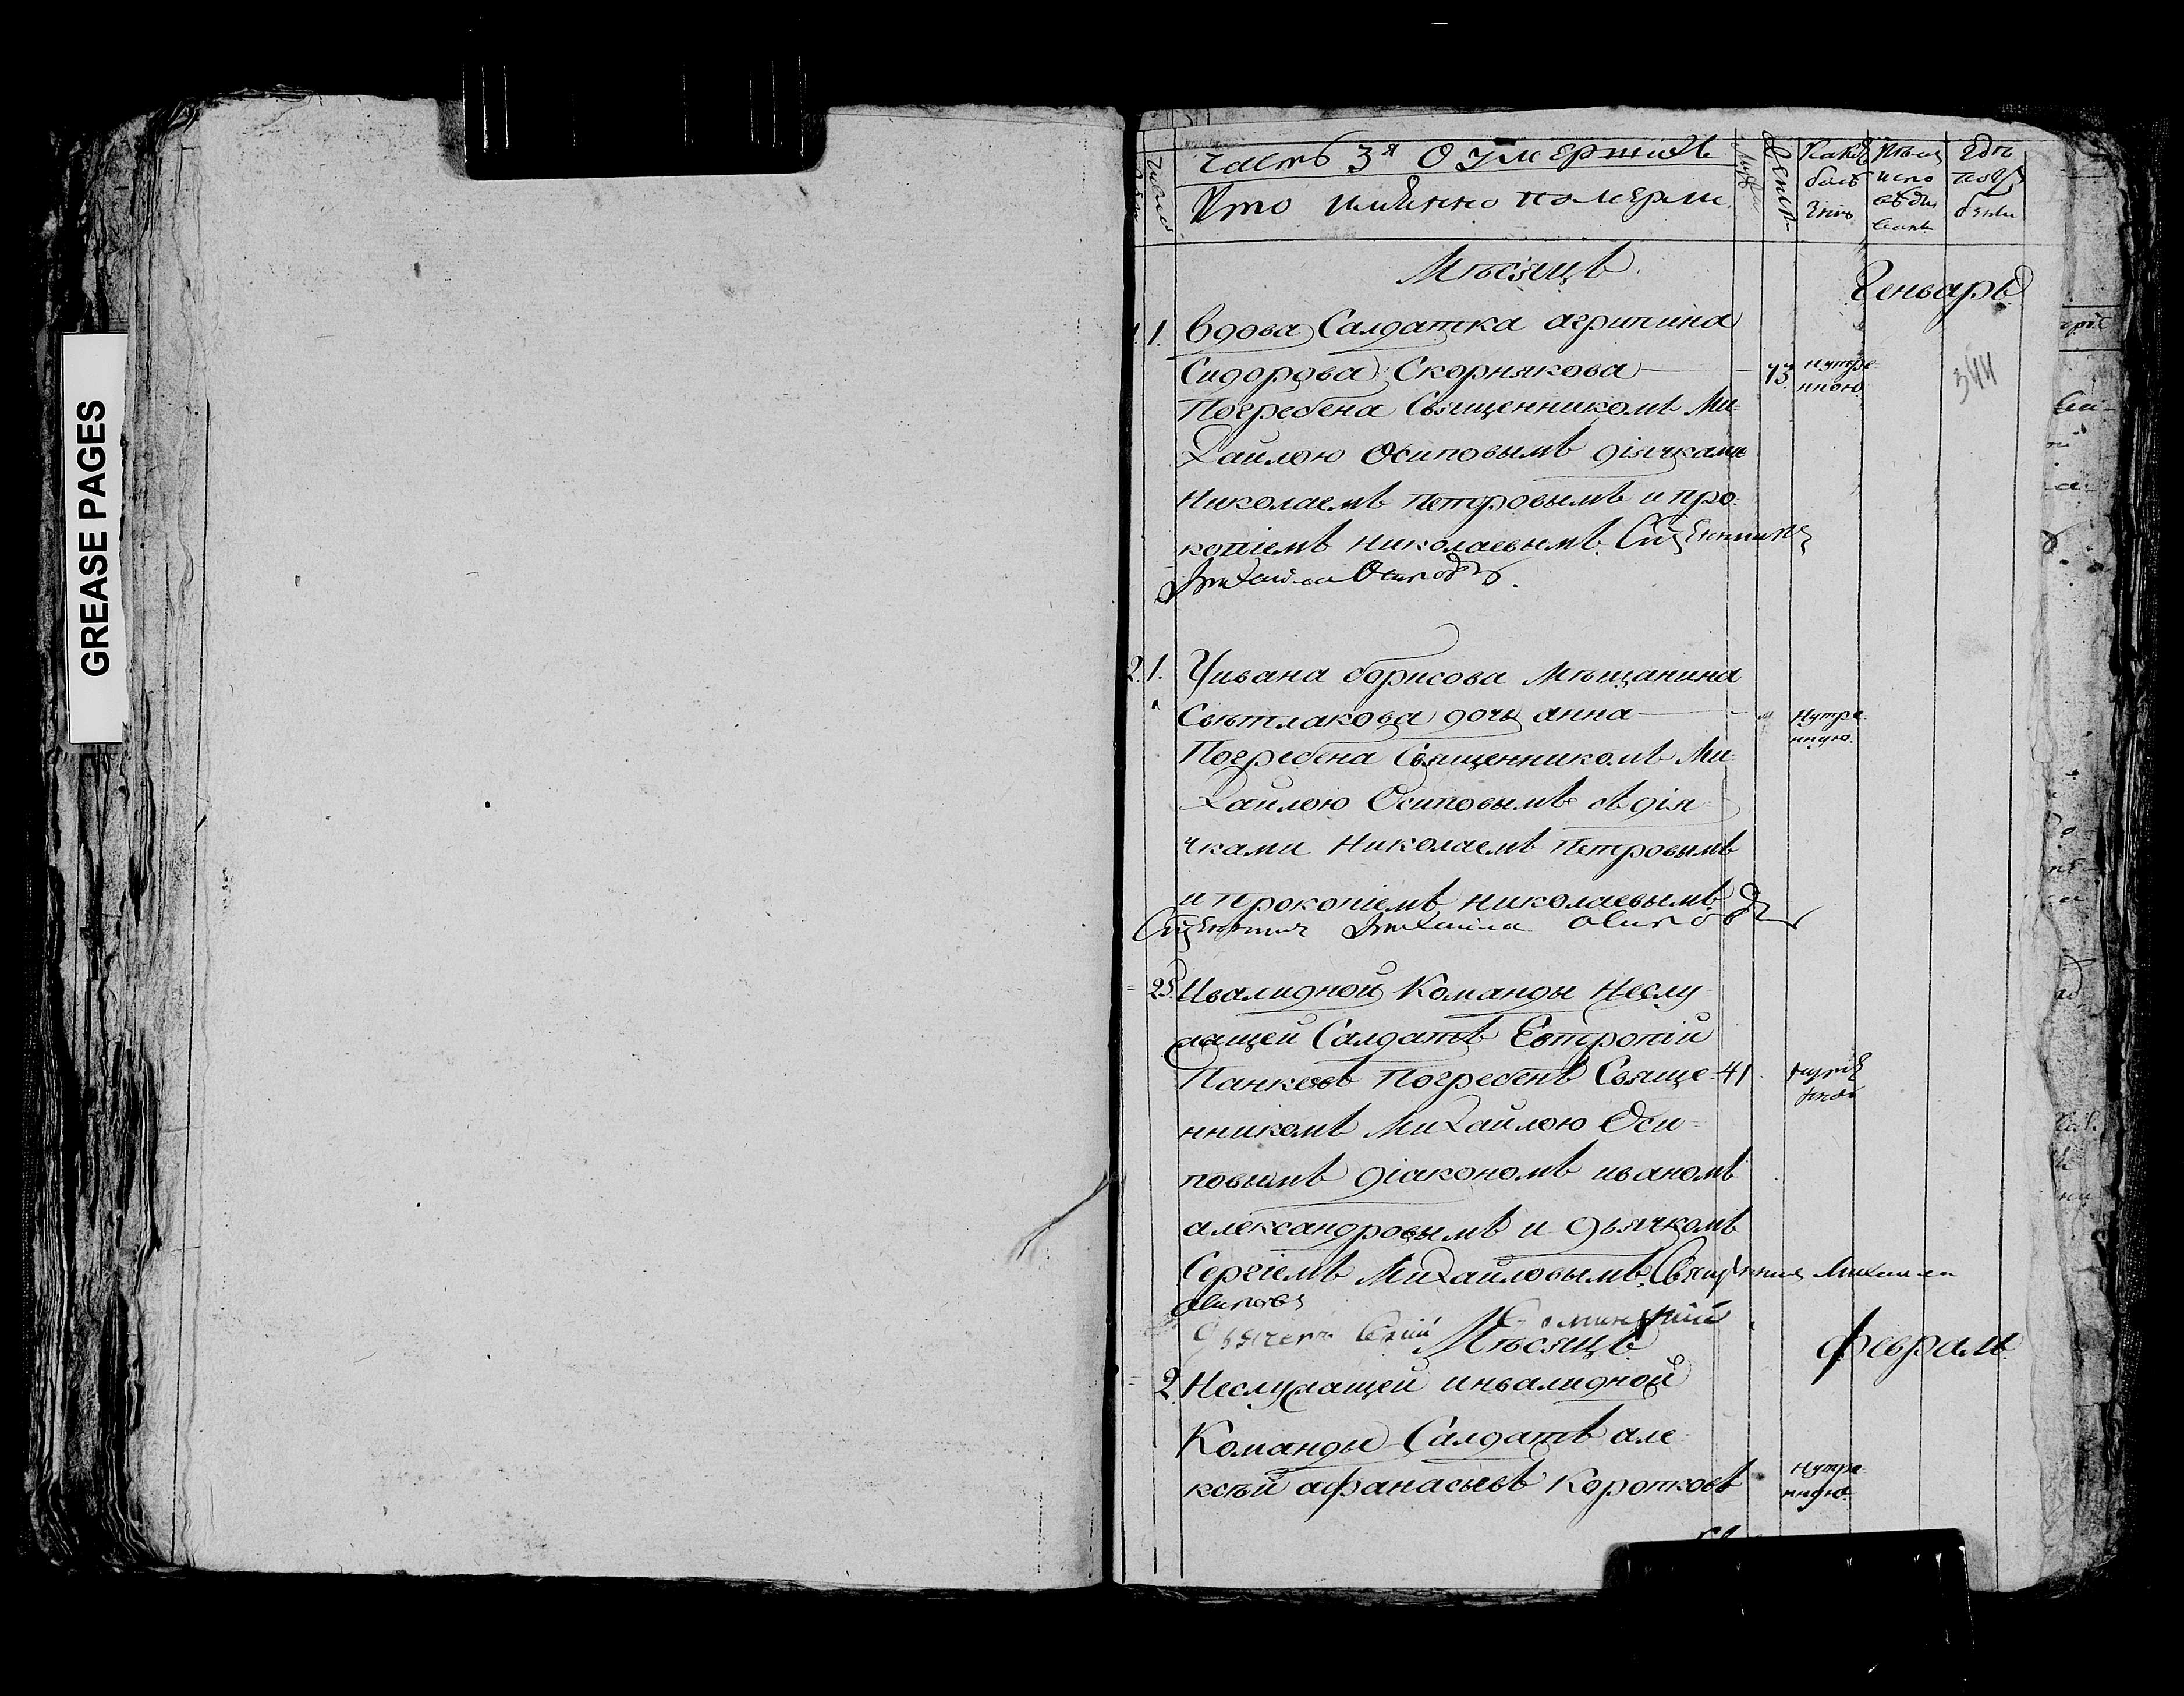 GREASE PAGES
Число
часть 3я О Умершихъ
Кто имЯнно померли
Лѣта
Какою
болѣ
знію
Кѣмъ
испо
вѣды
ваны
Гдѣ
погр
бѣны
Мѣсяцъ
Генварь
1. 1. Вдова Салдатка агрипина
Сидорова Скорнякова 73. нутре
нною
344
Погребена Священникомъ Ми=
хайлою Осиповымъ діячками
Николаемъ Петровымъ и про=
копіемъ Николаевымъ. Сщенникъ
Михаила Осиповъ.
2. 1. Ивана борисова мѣщанина
Свѣтлакова дочь анна нутре
нную.
Погребена Священникомъ Ми=
хайлою Осиповымъ съ дія=
чками Николаемъ Петровымъ
и Прокопіемъ Николаевымъ
Сщенникъ Михаила Осиповъ
25. Ивалидной Команды Неслу=
жащей Салдатъ Евтропій
Панковъ Погребенъ Свяще= 41
нникомъ Михайлою Оси=
повымъ діакономъ иваномъ
александровымъ и дьячкомъ
Сергіемъ Михайловымъ. Священникъ Михаила
Осиповъ
Дьячекъ
Мѣсяцъ
февраль
2. Неслужащей инвалидной
Команды Салдатъ але=
ксѣй афанасьевъ Коротковъ нутре
нную.